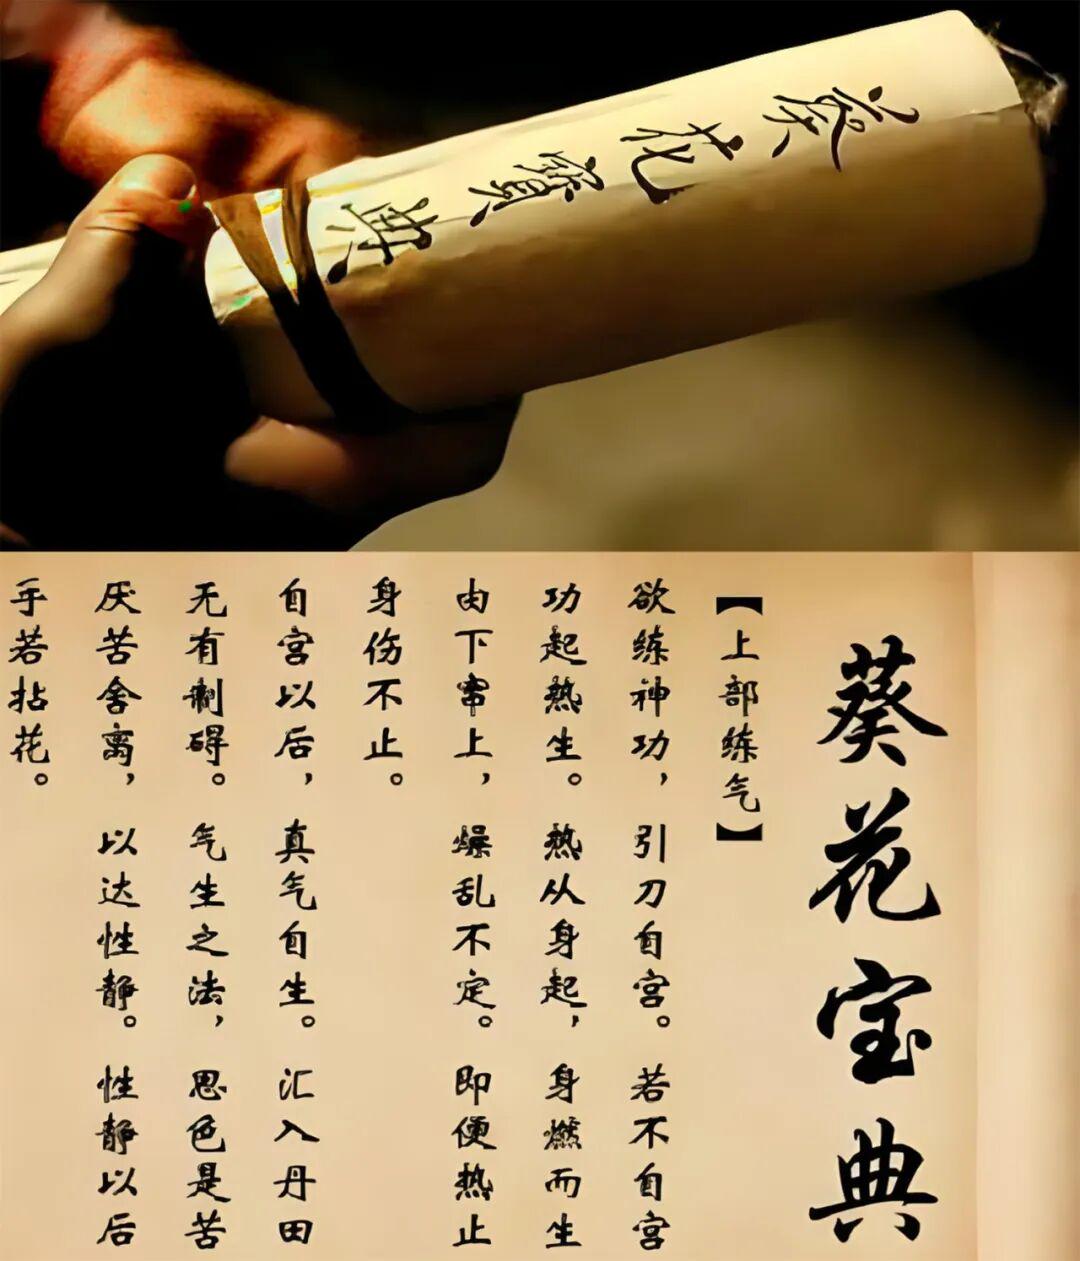 葵花寶典
葵花宝典
【上部练气】
欲练神功，引刀自宫。若不自宫
功起热生。热从身起，身燃而生
由下窜上，燥乱不定。即便热止
身伤不止。
自宫以后，真气自生。汇入丹田
无有制碍。气生之法，思色是苦
厌苦舍离，以达性静。性静以后
手若拈花。